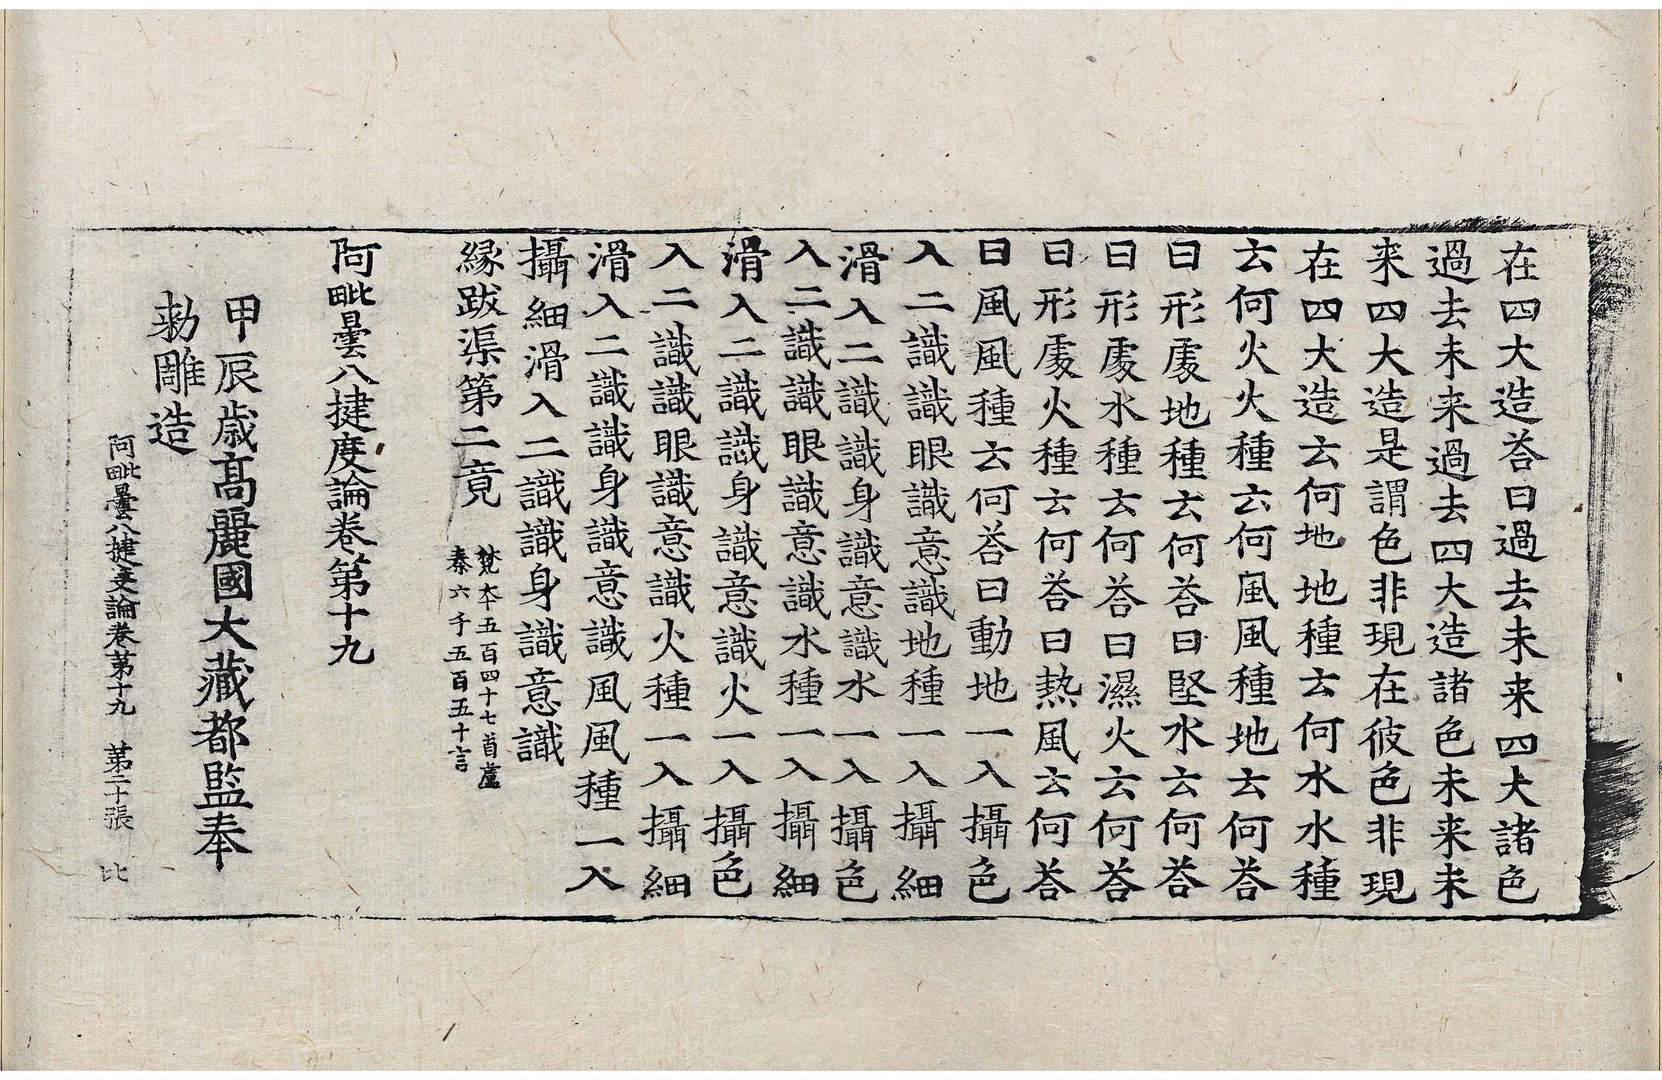 在四大造荅曰過去未来四大諸色
過去未来過去四大造諸色未来未
来四大造是謂色非現在彼色非現
在四大造云何地地種云何水水種
云何火火種云何風風種地云何荅
曰形處地種云何荅曰堅水云何荅
曰形處水種云何荅曰濕火云何荅
曰形處火種云何荅曰熱風云何荅
曰風風種云何荅曰動地一入攝色
入二識識眼識意識地種一入攝細
滑入二識識身識意識水一入攝色
入二識識眼識意識水種一入攝細
滑入二識識身識意識火一入攝色
入二識識眼識意識火種一入攝細
滑入二識識身識意識風風種一入
攝細滑入二識識身識意識
縁跋渠第二竟
梵本五百四十七首盧
秦六千五百五十言
阿毗曇八揵度論卷第十九
甲辰歳高麗國大藏都監奉
勅雕造
阿毗曇八揵度論卷第十九 第二十張 比